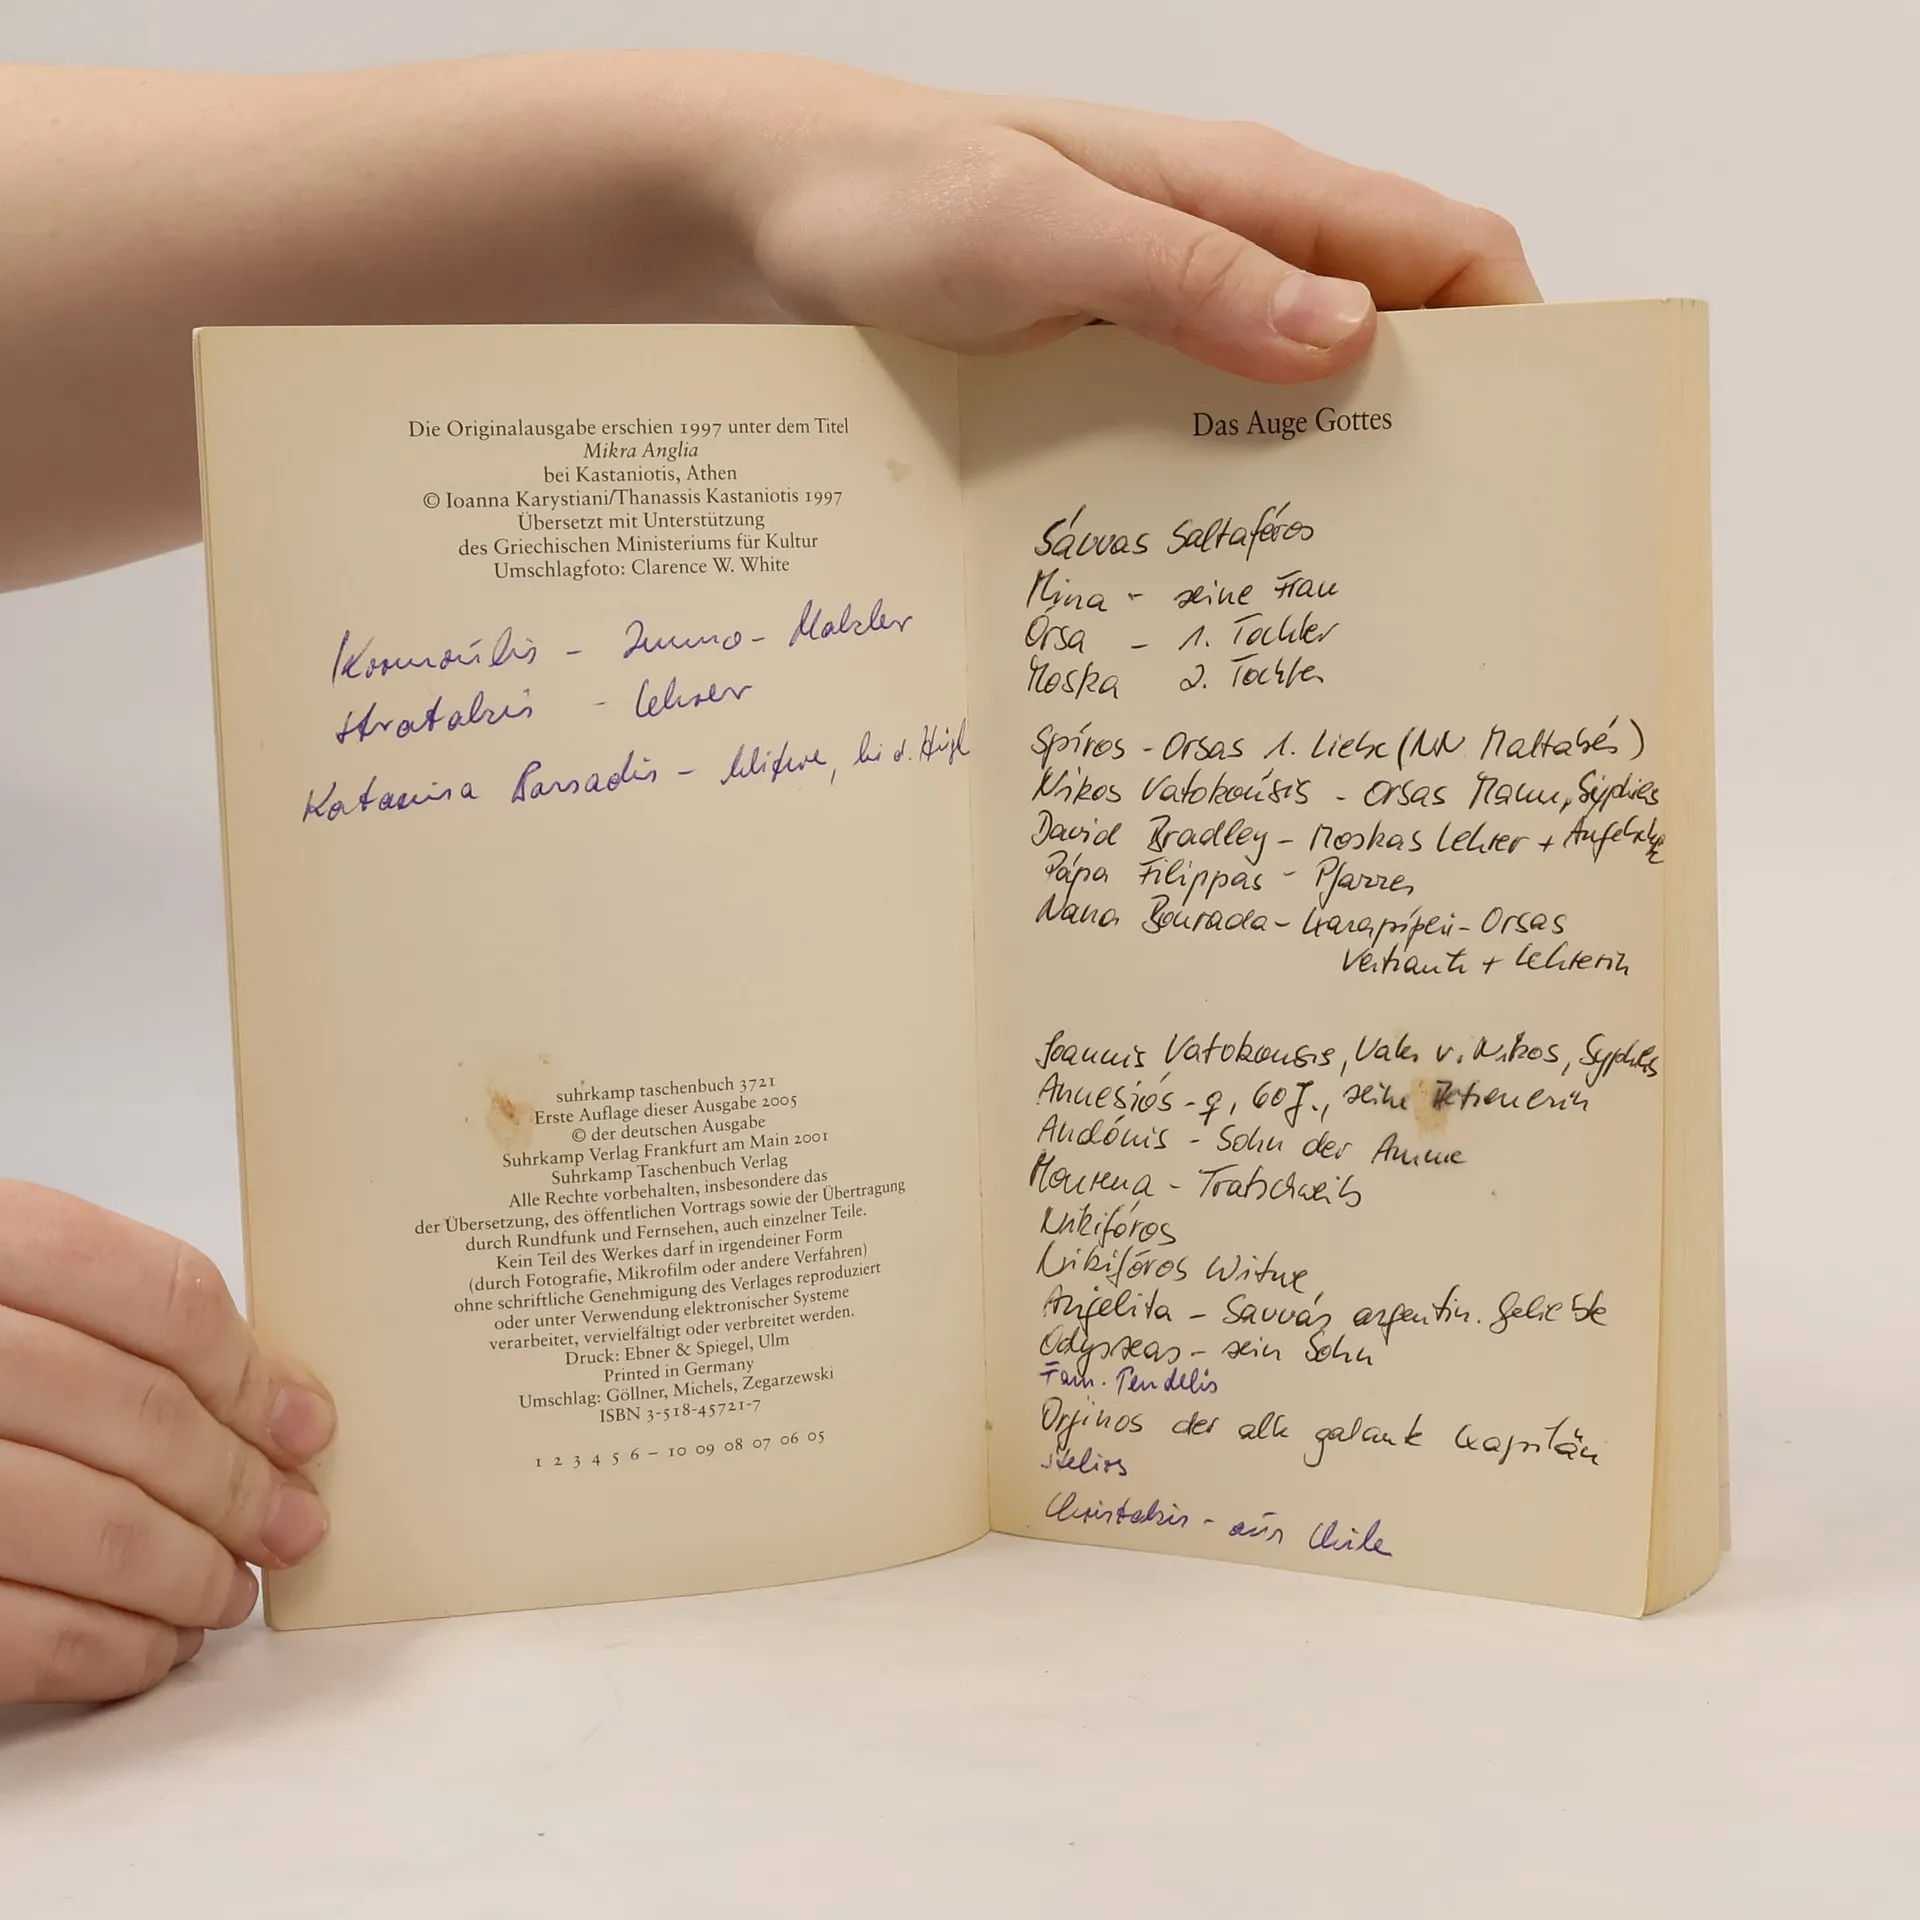 Die Originalausgabe erschien 1997 unter dem Titel
Mikra Anglia
bei Kastaniotis, Athen
© Ioanna Karystiani/Thanassis Kastaniotis 1997
Übersetzt mit Unterstützung
des Griechischen Ministeriums für Kultur
Umschlagfoto: Clarence W. White
- Immo-Makler
- Lehrer
Katarina - Witwe, bei d.
suhrkamp taschenbuch 3721
Erste Auflage dieser Ausgabe 2005
© der deutschen Ausgabe
Suhrkamp Verlag Frankfurt am Main 2001
Suhrkamp Taschenbuch Verlag
Alle Rechte vorbehalten, insbesondere das
der Übersetzung, des öffentlichen Vortrags sowie der Übertragung
durch Rundfunk und Fernsehen, auch einzelner Teile.
Kein Teil des Werkes darf in irgendeiner Form
(durch Fotografie, Mikrofilm oder andere Verfahren)
ohne schriftliche Genehmigung des Verlages reproduziert
oder unter Verwendung elektronischer Systeme
verarbeitet, vervielfältigt oder verbreitet werden.
Druck: Ebner & Spiegel, Ulm
Printed in Germany
Umschlag: Göllner, Michels, Zegarzewski
ISBN 3-518-45721-7
1 2 3 4 5 6 – 10 09 08 07 06 05
Das Auge Gottes
Sávvas Saltaféros
Mina - seine Frau
Órsa - 1. Tochter
Moska 2. Tochter
Spíros - Orsas 1. Liebe (NN Maltabés)
Nikos Vatokoúsis - Orsas Mann, Syphilis
David Bradley - Moskas Lehrer +
Pápa Filippas - Pfarrer
Nana Boúrada - - Orsas
Vertraute + Lehrerin
Joannis Vatokousis, Vater v. Nikos, Syphilis
- ♀, 60 J., seine
Andónis - Sohn der Amme
- Tratschweib
Nikifóros
Nikifóros Witwe
Anjelita - Savvas argentin. Geliebte
Odysseas - sein Sohn
Fam. Tendelis
Orjinos der alte galante Kapitän
Stelios
Christakis - aus Chile